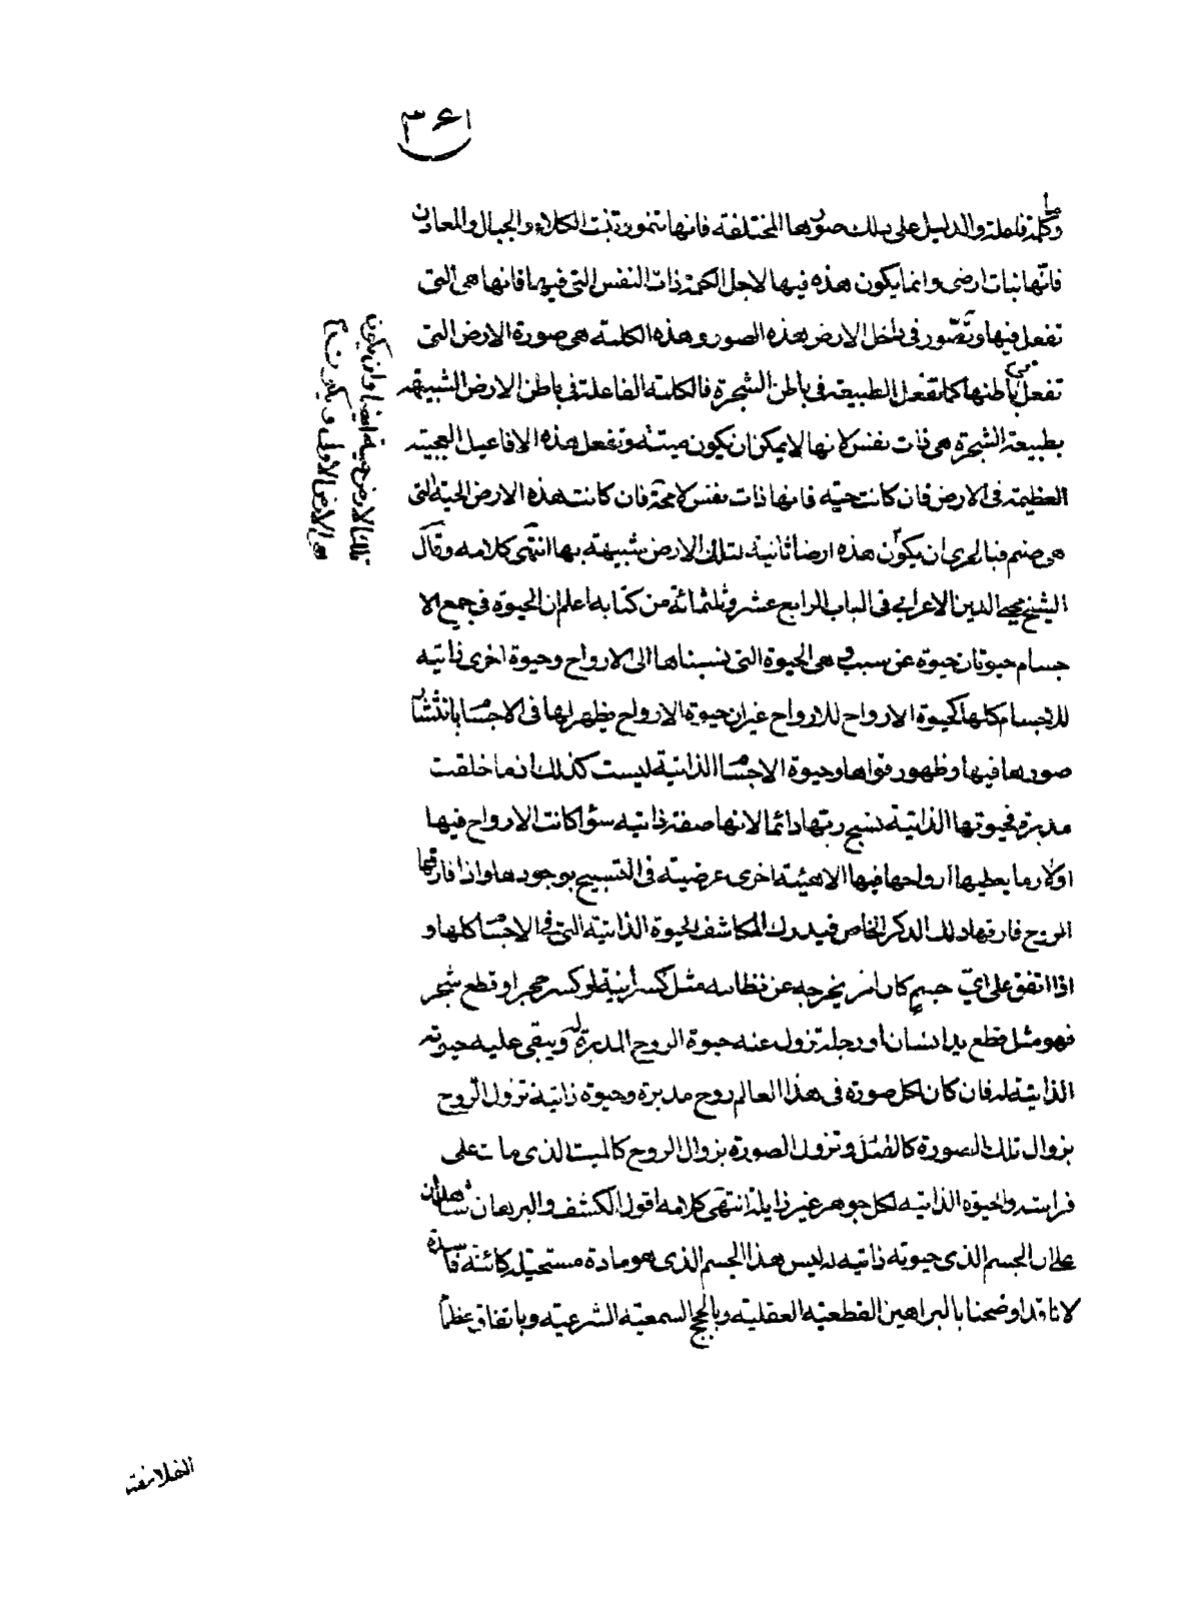 ٣٤١
ما
وكلمة فاعلة والدليل على ذلك صورها المختلفة فانها تنمو وتنبت الكلاء والجبال والمعادن
فانّها نبات ارضى وانما يكون هذه فيها لاجل الكلمة ذات النفس التى فيها فانها هى التى
تفعل فيها وتصّور فى داخل الارض بهذه الصور وهذه الكلمة هى صورة الارض التى
تفعل فى باطنها كما تفعل الطبيعة فى باطن الشجرة فالكلمة الفاعلة فى باطن الارض الشبيهة
بطبيعة الشجرة هى ذات نفس لانها لا يمكن ان يكون ميتة وتفعل هذه الافاعيل العجيبة
العظيمة فى الارض فان كانت حيّة فانها ذات نفس لا محة فان كانت هذه الارض الحية التى
هى صنم فبالحرى ان يكون هذه ارضا ثانية لتلك الارض شبيهة بها انتهى كلامه وقال
الشيخ محيى الدين الاعرابى فى الباب الرابع عشر وثلثمائة من كتابه اعلم ان الحيوة فى جميع الا
جسام حيوتان حيوة عن سبب وهى الحيوة التى نسبناها الى الارواح وحيوة اخرى ذاتية
للاجسام كلها كحيوة الارواح للارواح غير ان حيوة الارواح يظهر لها فى الاجسا بانتشار
صورها فيها وظهور قواها وحيوة الاجسا الذاتية ليست كذلك انها خلقت
مدبرة فحيوتها الذاتية تسبح ربها دائما لانها صفة ذاتية سواء كانت الارواح فيها
اولا وما يعطيها ارواحها فيها الا هيئة اخرى عرضية فى التسبيح بوجودها واذا فارقها
الروح فارقها ذلك الذكر الخاص فيدرك المكاشف الحيوة الذاتية التى فى الاجسا كلها و
اذا اتفق على اىّ جسم كان امر يخرجه عن نظامه مثل كسر انية او كسر حجر او قطع شجر
فهو مثل قطع يد انسان او رجله تزول عنه حيوة الروح المدبرة له ويبقى عليه حيوته
الذاتية له فان كان لكل صورة فى هذا العالم روح مدبرة وحيوة ذاتية تزول الروح
بزوال تلك الصورة كالقتل وتزول الصورة بزوال الروح كالميت الذى مات على
فراشه والحيوة الذاتية لكل جوهر غير زايلة انتهى كلامه اقول الكشف والبرهان شاهدان
على ان الجسم الذى حيوته ذاتية له ليس هذا الجسم الذى هو مادة مستحيلة كائنة فاسدة
لانا قد اوضحنا بالبراهين القطعية العقلية وبالحجج السمعية الشرعية وباتفاق عظما
تلك الارض حية ايضا وان يكون
هى الارض الاولى ويكون
الفلاسفة